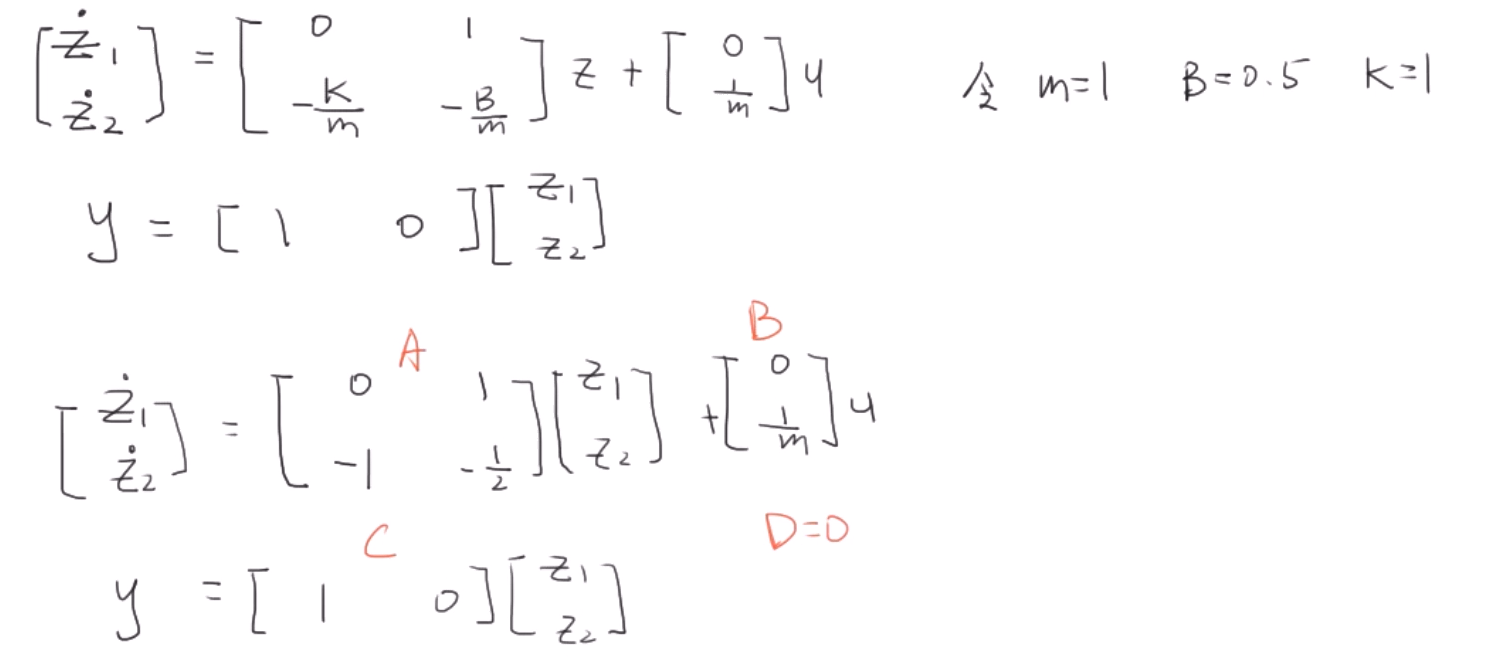 [ż₁ ż₂] = [0 1 -K/m -B/m] z + [0 1/m] u 令 m=1 B=0.5 K=1
y = [1 0][z₁ z₂]
A B
[ż₁ ż₂] = [0 1 -1 -1/2][z₁ z₂] + [0 1/m] u
C D=0
y = [1 0][z₁ z₂]